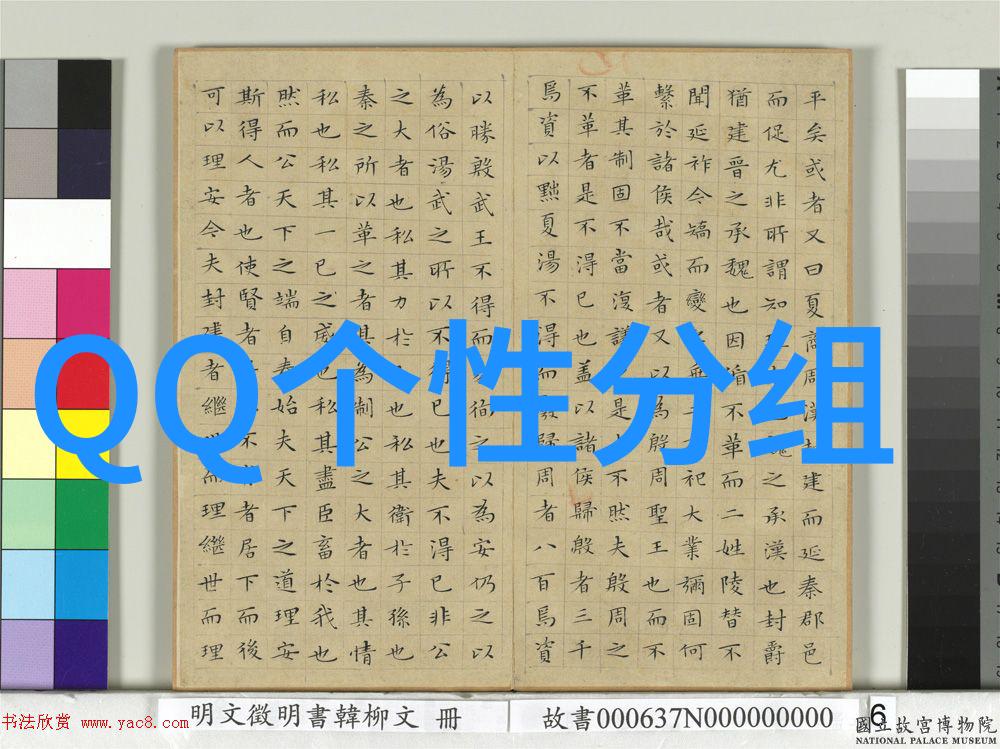 平矣或者又曰夏商周漢封建而延秦郡邑
而促尤非所謂知理也魏之承漢也封爵
猶建晉之承魏也因循不革而二姓陵替不
聞延祚今矯而變之垂二祀大業彌固何
繫於諸侯哉或者又以為殷周聖王也而不
革其制固不當復議也是大不然夫殷周之
不革者是不得已也盖以諸侯歸殷者三千
焉資以黜夏湯不得而廢歸周者八百焉資
以勝殷武王不得而徇之以為安仍之以
為俗湯武之所以不得已也夫不得已非公
之大者也私其力於也私其衛於子孫也
秦之所以革之者其為制公之大者也其情
私也私其一己之威也私其盡臣畜於我也
然而公天下之端自秦始夫天下之道理安
斯得人者也使賢者不者居下而後
可以理安今夫封建者繼世而理繼世而理
QQ个性分组
明文徵明書韓柳文 冊
故書000637N000000000
6
書法欣賞 www.yac8.com
國立故宮博物院
NATIONAL PALACE MUSEUM